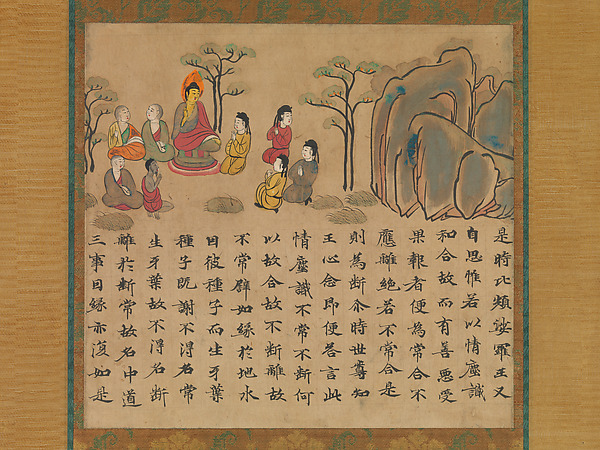 是時比頻娑羅王又
自思惟若以情塵識
和合故而有善惡受
果報者便為常合不
應離絕若不常合是
則為斷尒時世尊知
王心念即便荅言此
情塵識不常不斷何
以故合故不斷離故
不常辟如緣於地水
因彼種子而生牙葉
種子既謝不得名常
生牙葉故不得名斷
離於斷常故名中道
三事因緣亦復如是